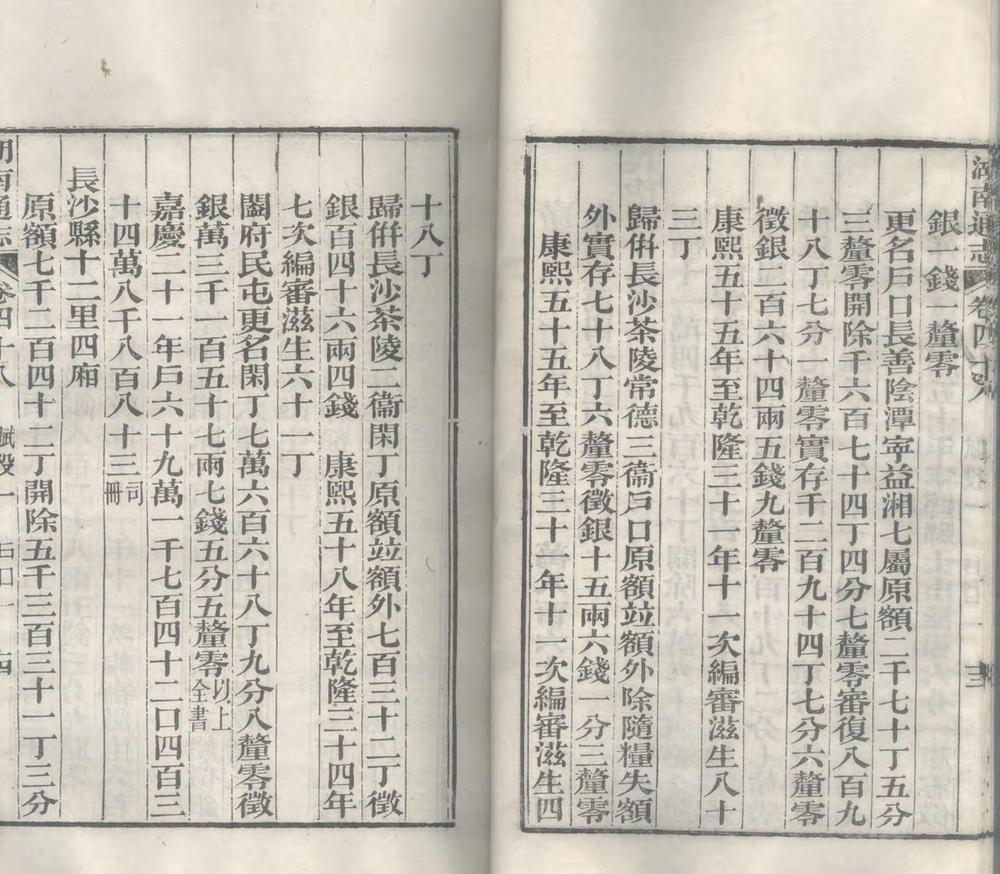 湖南通志 卷四十八
銀二錢一釐零
更名戶口長善陰潭寧益湘七屬原額二千七十丁五分
三釐零開除千六百七十四丁四分七釐零審復八百九
十八丁七分一釐零實存千二百九十四丁七分六釐零
徵銀二百六十四兩五錢九釐零
康熙五十五年至乾隆三十一年十一次編審滋生八十
三丁
歸併長沙茶陵常德三衞戶口原額竝額外除隨糧失額
外實存七十八丁六釐零徵銀十五兩六錢一分三釐零
康熙五十五年至乾隆三十一年十一次編審滋生四
十八丁
歸併長沙茶陵二衞閑丁原額竝額外七百三十二丁徵
銀百四十六兩四錢 康熙五十八年至乾隆三十四年
七次編審滋生六十一丁
闔府民屯更名閑丁七萬六百六十八丁九分八釐零徵
銀萬三千一百五十七兩七錢五分五釐零以上全書
嘉慶二十一年戶六十九萬一千七百四十二口四百三
十四萬八千八百八十三司冊
長沙縣十二里四廂
原額七千二百四十二丁開除五千三百三十一丁三分
南通志 卷四十八 賦役一 戶口一